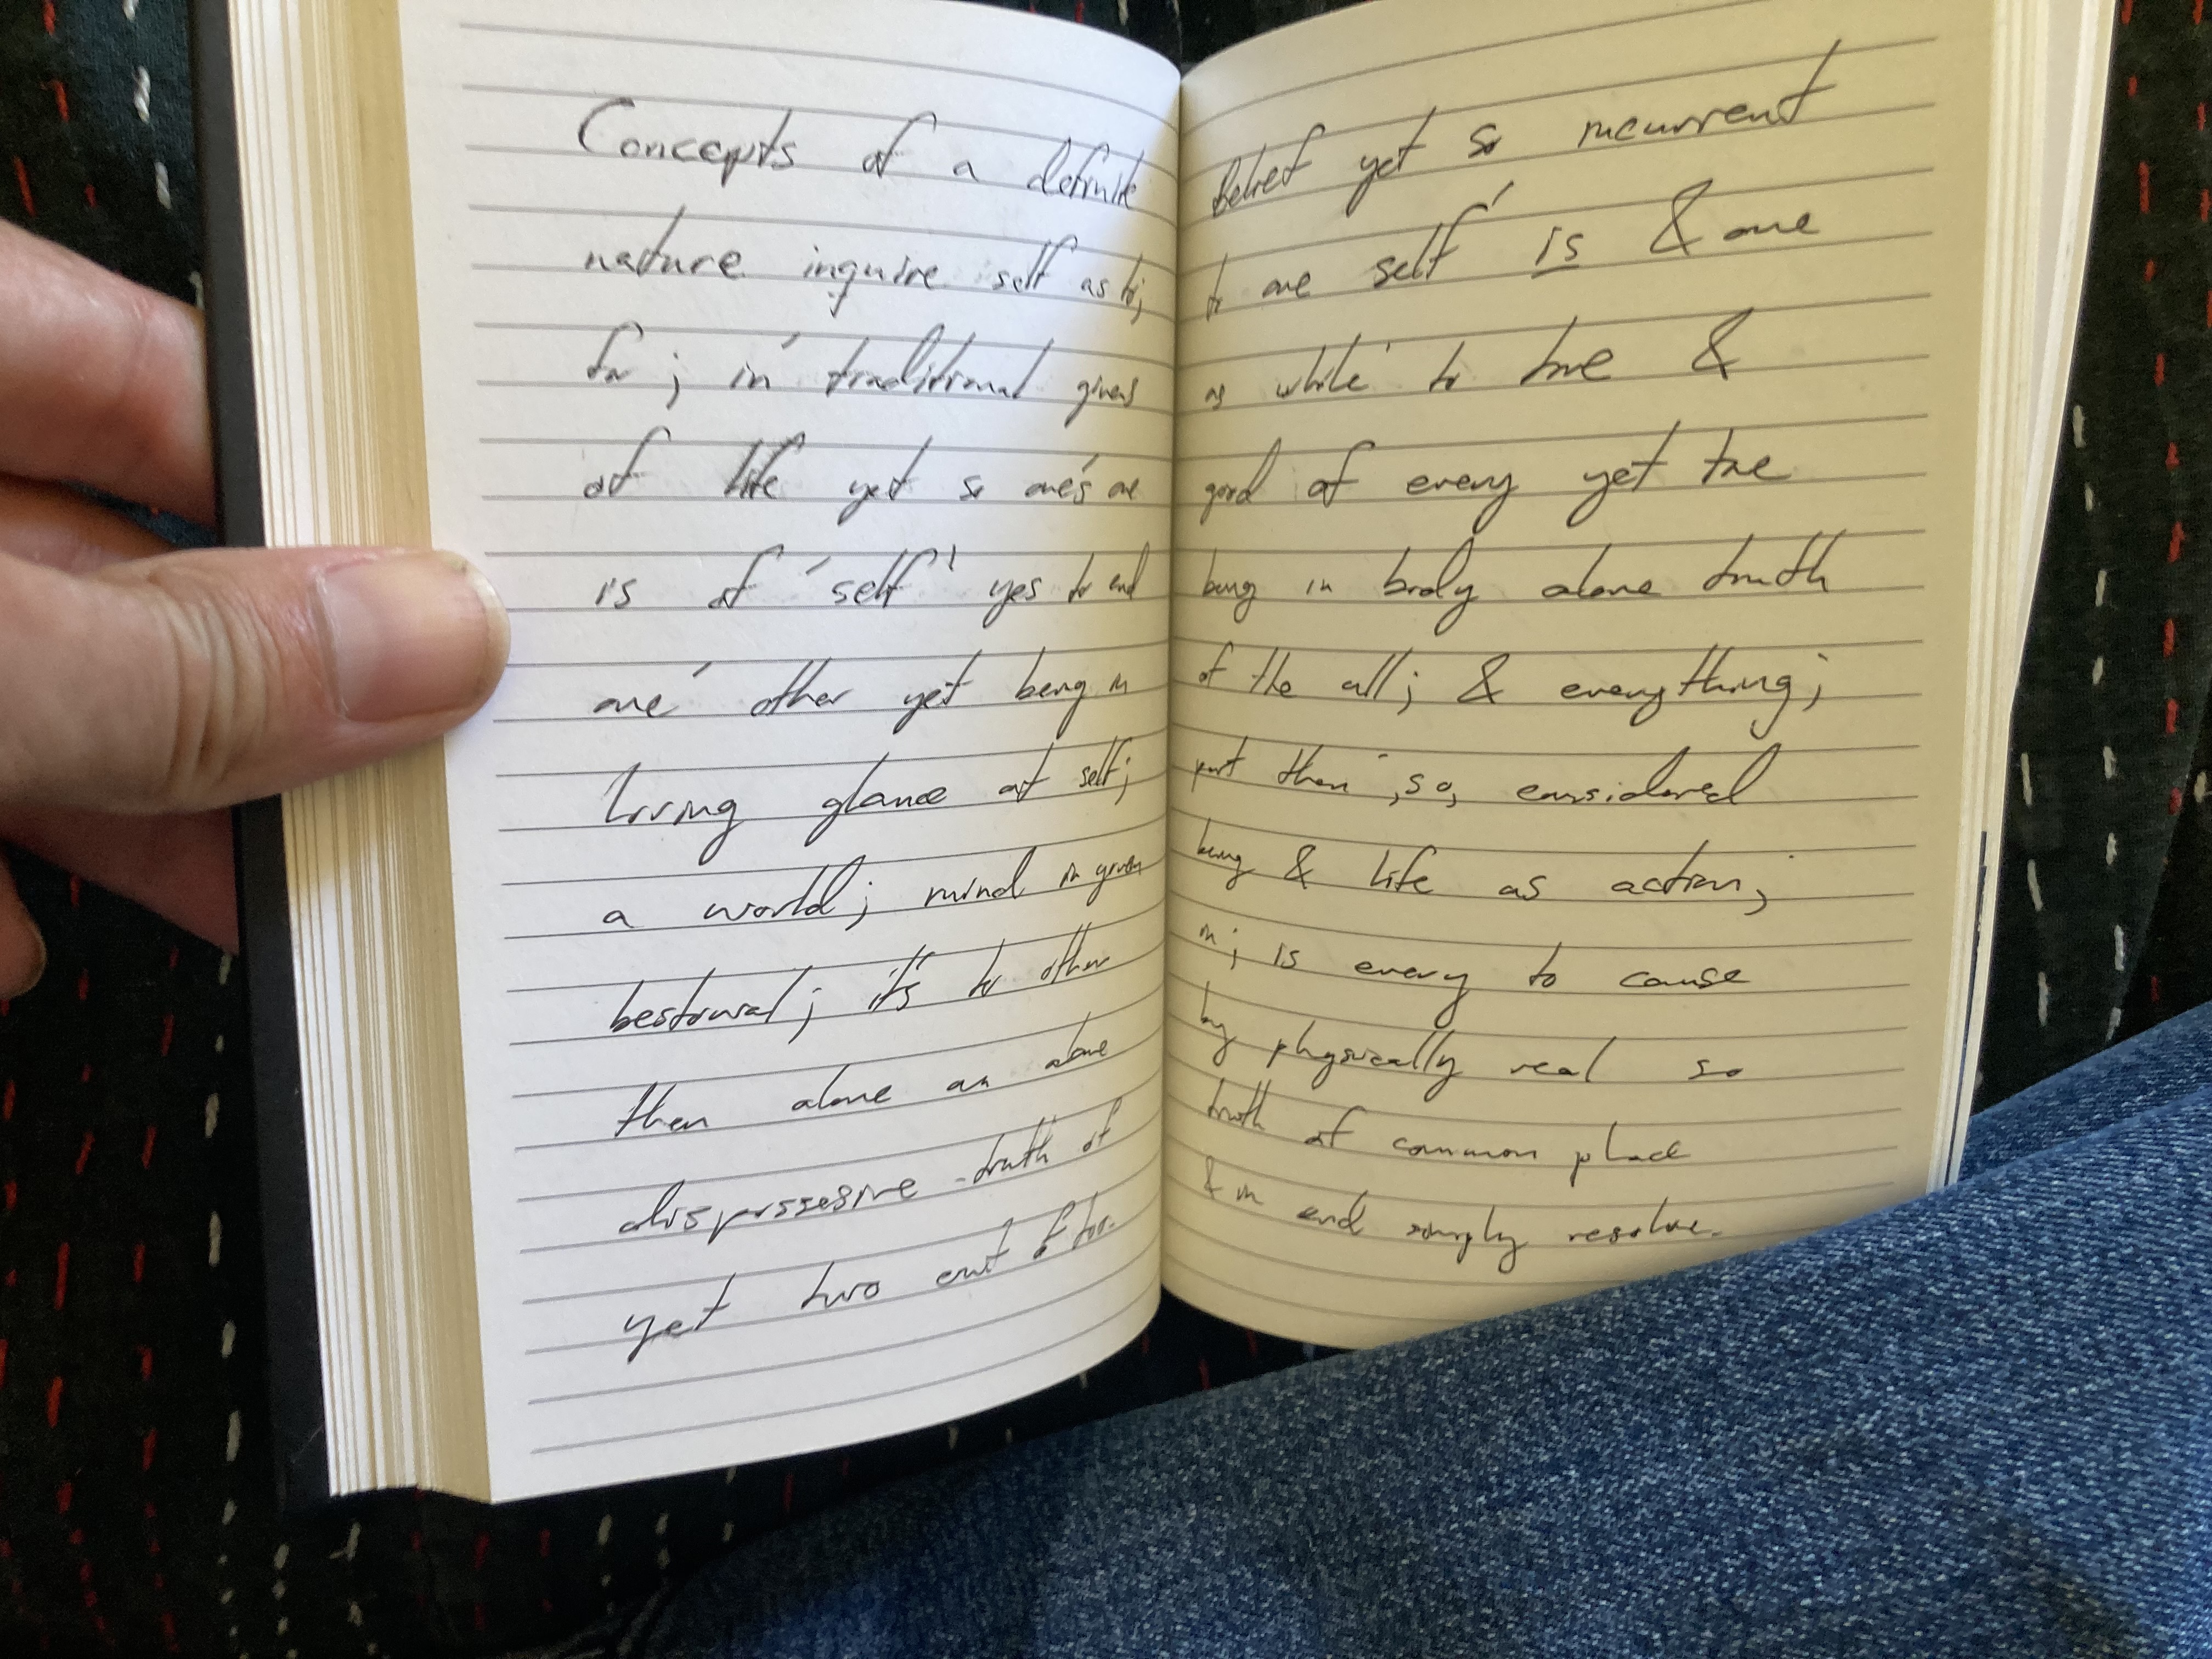 Concepts of a definite
nature inquire self as to;
for; in' traditional givens
of life yet so one's one
is of 'self' yes to end
one' other yet being in
living glance at self;
a world; mind in given
bestowal; it's to other
then alone an alone
dispossessive - truth of
yet two out of two.
Belief yet so recurrent
to one self' is & one
as while' to true &
good of every yet true
being in body alone truth
of the all; & everything;
part then ,so, considered
being & life as action;
in; is every to cause
by physically real so
truth of common place
& in end simply resolve.